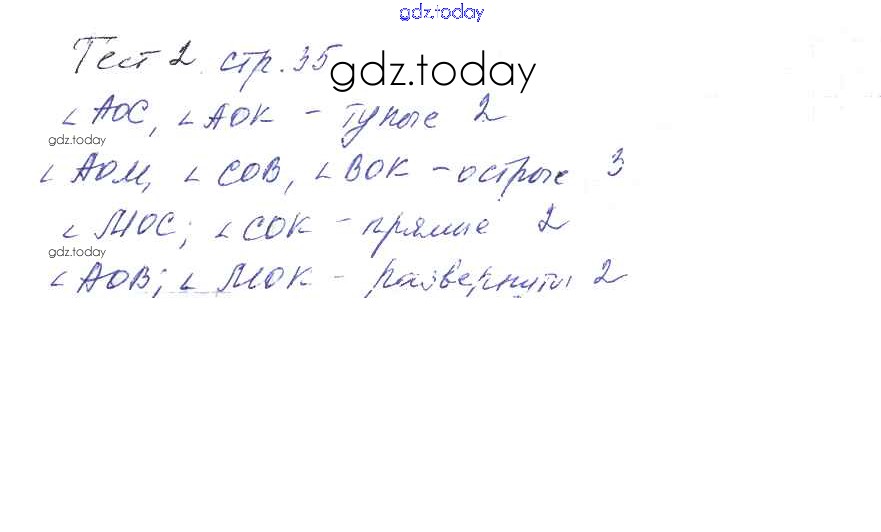 gdz.today
Тест 2 стр. 35
gdz.today
∠ AOC, ∠ AOK - тупые 2
gdz.today
∠ AOM, ∠ COB, ∠ BOK - острые 3
∠ MOC; ∠ COK - прямые 2
gdz.today
∠ AOB; ∠ MOK - развернуты 2